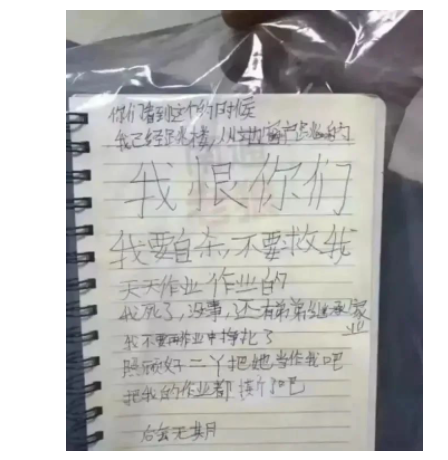 你们看到这个的时候
我已经跳楼,从
我恨你们
我要自杀,不要救我
天天作业作业的
我死了,没事,还有弟弟继承家业
我不要再作业中挣扎了
照顾好二丫把她当作我吧
把我的作业都 烧了吧
后会无期